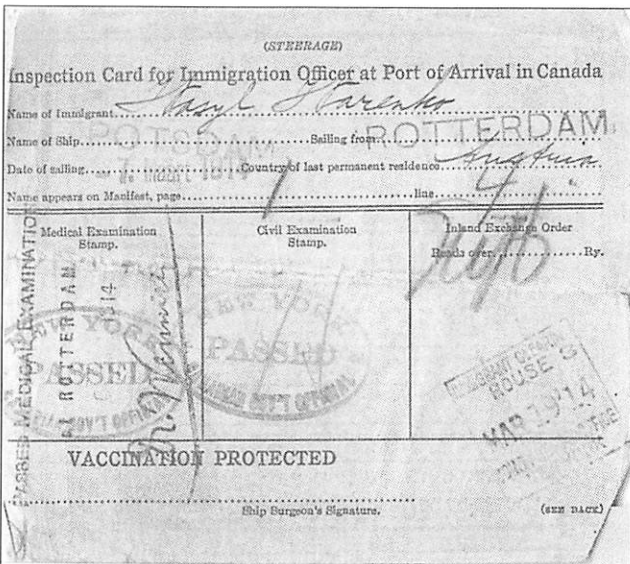 (STEERAGE)
Inspection Card for Immigration Officer at Port of Arrival in Canada
Name of Immigrant Wasyl
Name of Ship POTSDAM Sailing from ROTTERDAM
Date of sailing 7 Country of last permanent residence Austria
Name appears on Manifest, page 1 line 4
Medical Examination
Stamp.
Civil Examination
Stamp.
Inland Exchange Order
Reads over Ry.
PASSED MEDICAL EXAMINATION
AT ROTTERDAM
1914
NEW YORK
PASSED
CANADIAN GOV'T OFFICIAL
NEW YORK
PASSED
CANADIAN GOV'T OFFICIAL
HOUSE
MAR 19 '14
VACCINATION PROTECTED
Ship Surgeon's Signature.
(SEE BACK)